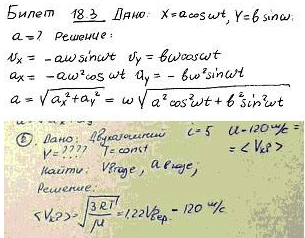 Билет 18.3 Дано: X=acosωt, Y=bsinωt.
a=? Решение:
Vx = -aωsinωt Vy = bωcosωt
ax = -aω²cosωt ay = -bω²sinωt
a = √ax²+ay² = ω√a²cos²ωt+b²sin²ωt
②. Дано: Двухатомный i=5 U=120 м/с =
V=???? T=const = <Vкв>
Найти: Vвер,
Решение:
<Vкв> = √3RT/μ = 1,22Vвер. = 120 м/с